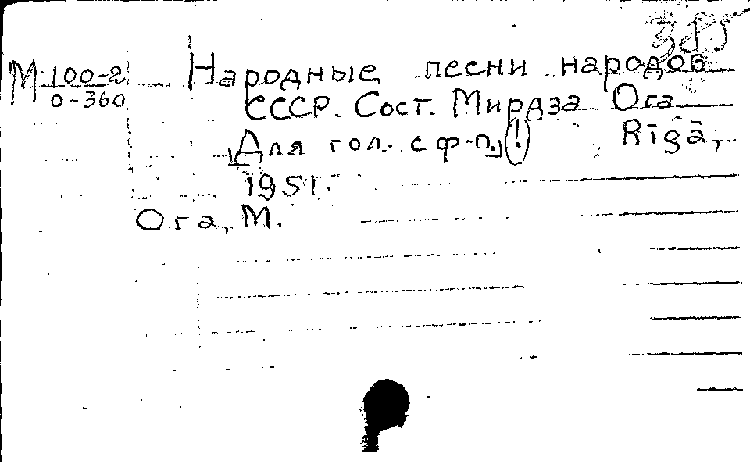 385
М 100-2
0-360
Народные песни народов
СССР. Сост. Мирдза Ога
[Для гол. с ф-п.] (!) Rīgā,
1951.
Ога, М.